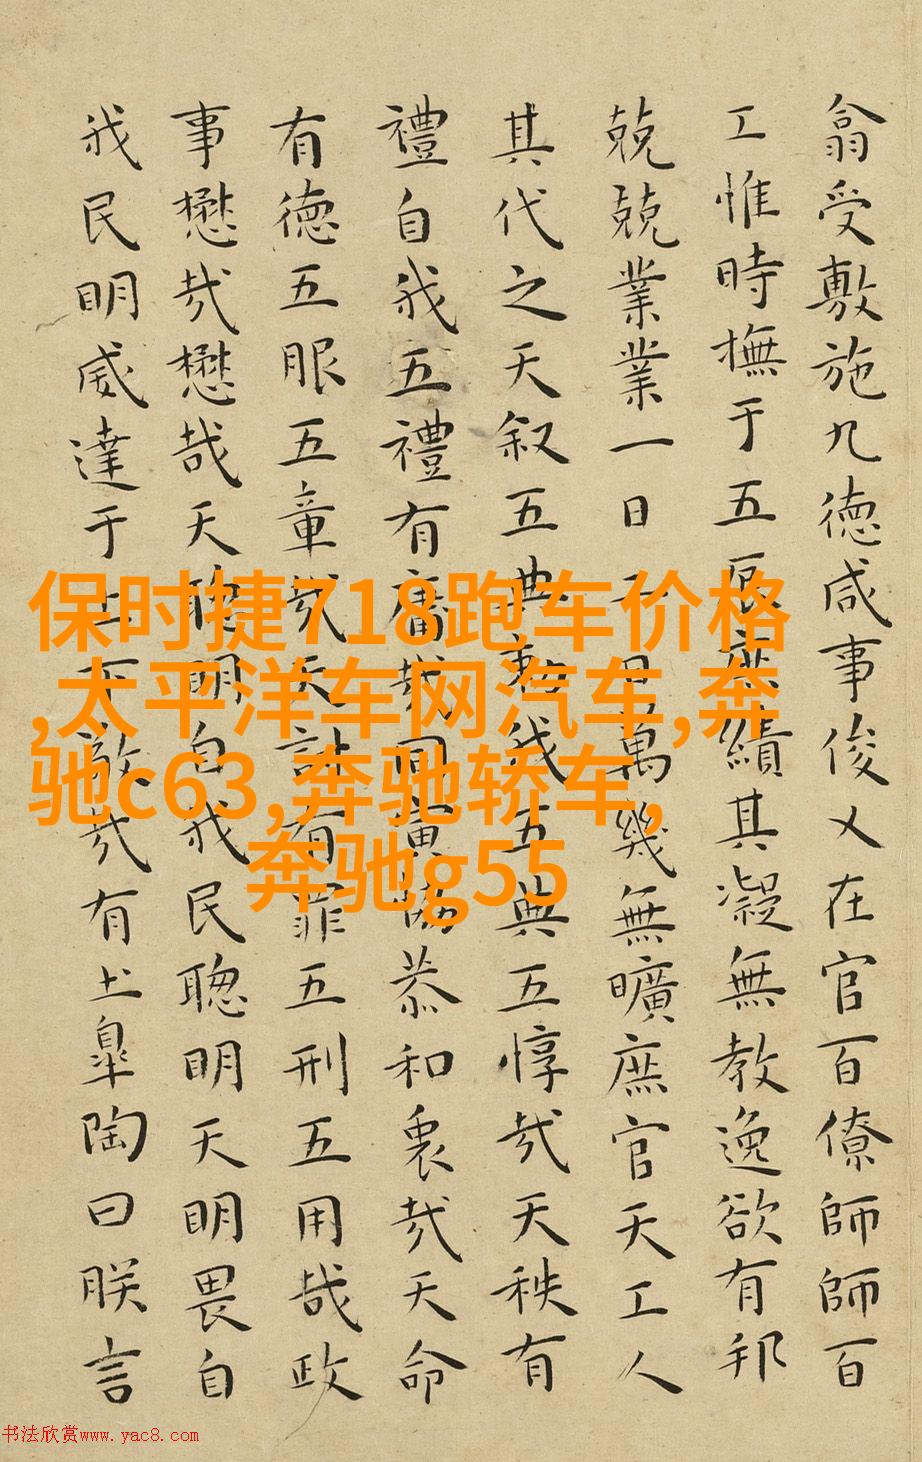 翕受敷施九德咸事俊乂在官百僚師師百
工惟時撫于五辰庶績其凝無教逸欲有邦
兢兢業業一日二日萬幾無曠庶官天工人
其代之天叙五典勑我五典五惇哉天秩有
禮自我五禮有庸哉同寅協恭和衷哉天命
有德五服五章哉天討有罪五刑五用哉政
事懋哉懋哉天聰明自我民聰明天明畏自
我民明威達于上下敬哉有土皐陶曰朕言
保时捷718跑车价格
,太平洋车网汽车,奔
驰c63,奔驰轿车,
奔驰g55
书法欣赏www.yac8.com